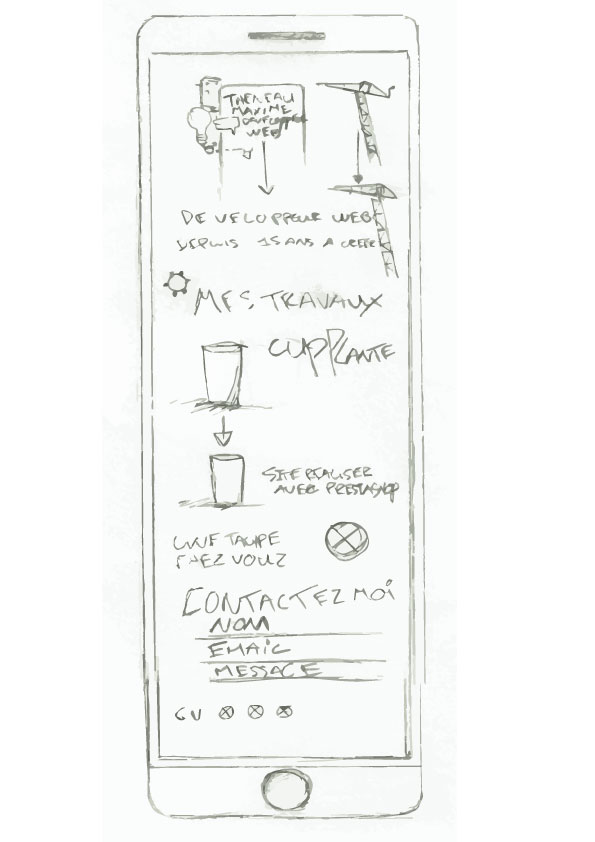 THENEAU
MAXIME
DEVELOPPEUR
WEB
DEVELOPPEUR WEB
DEPUIS 15 ANS A CREER
MES TRAVAUX
CUPPLANTE
SITE REALISER
AVEC PRESTASHOP
UNE TAUPE
CHEZ VOUZ
CONTACTEZ MOI
NOM
EMAIL
MESSAGE
CV